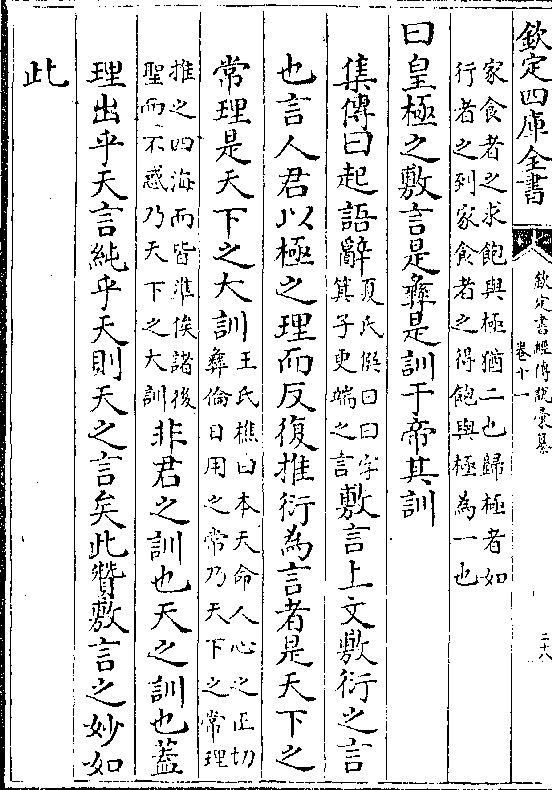 欽定四庫全書
欽定書經傳說彙纂
卷十一
二十八
家食者之求飽與極猶二也歸極者如
行者之到家食者之得飽與極為一也
曰皇極之敷言是彝是訓于帝其訓
集傳曰起語辭
夏氏僎曰曰字
箕子更端之言
敷言上文敷衍之言
也言人君以極之理而反復推衍為言者是天下之
常理是天下之大訓
王氏樵曰本天命人心之正切
彝倫日用之常乃天下之常理
推之四海而皆準俟諸後
聖而不惑乃天下之大訓
非君之訓也天之訓也蓋
理出乎天言純乎天則天之言矣此贊敷言之妙如
此